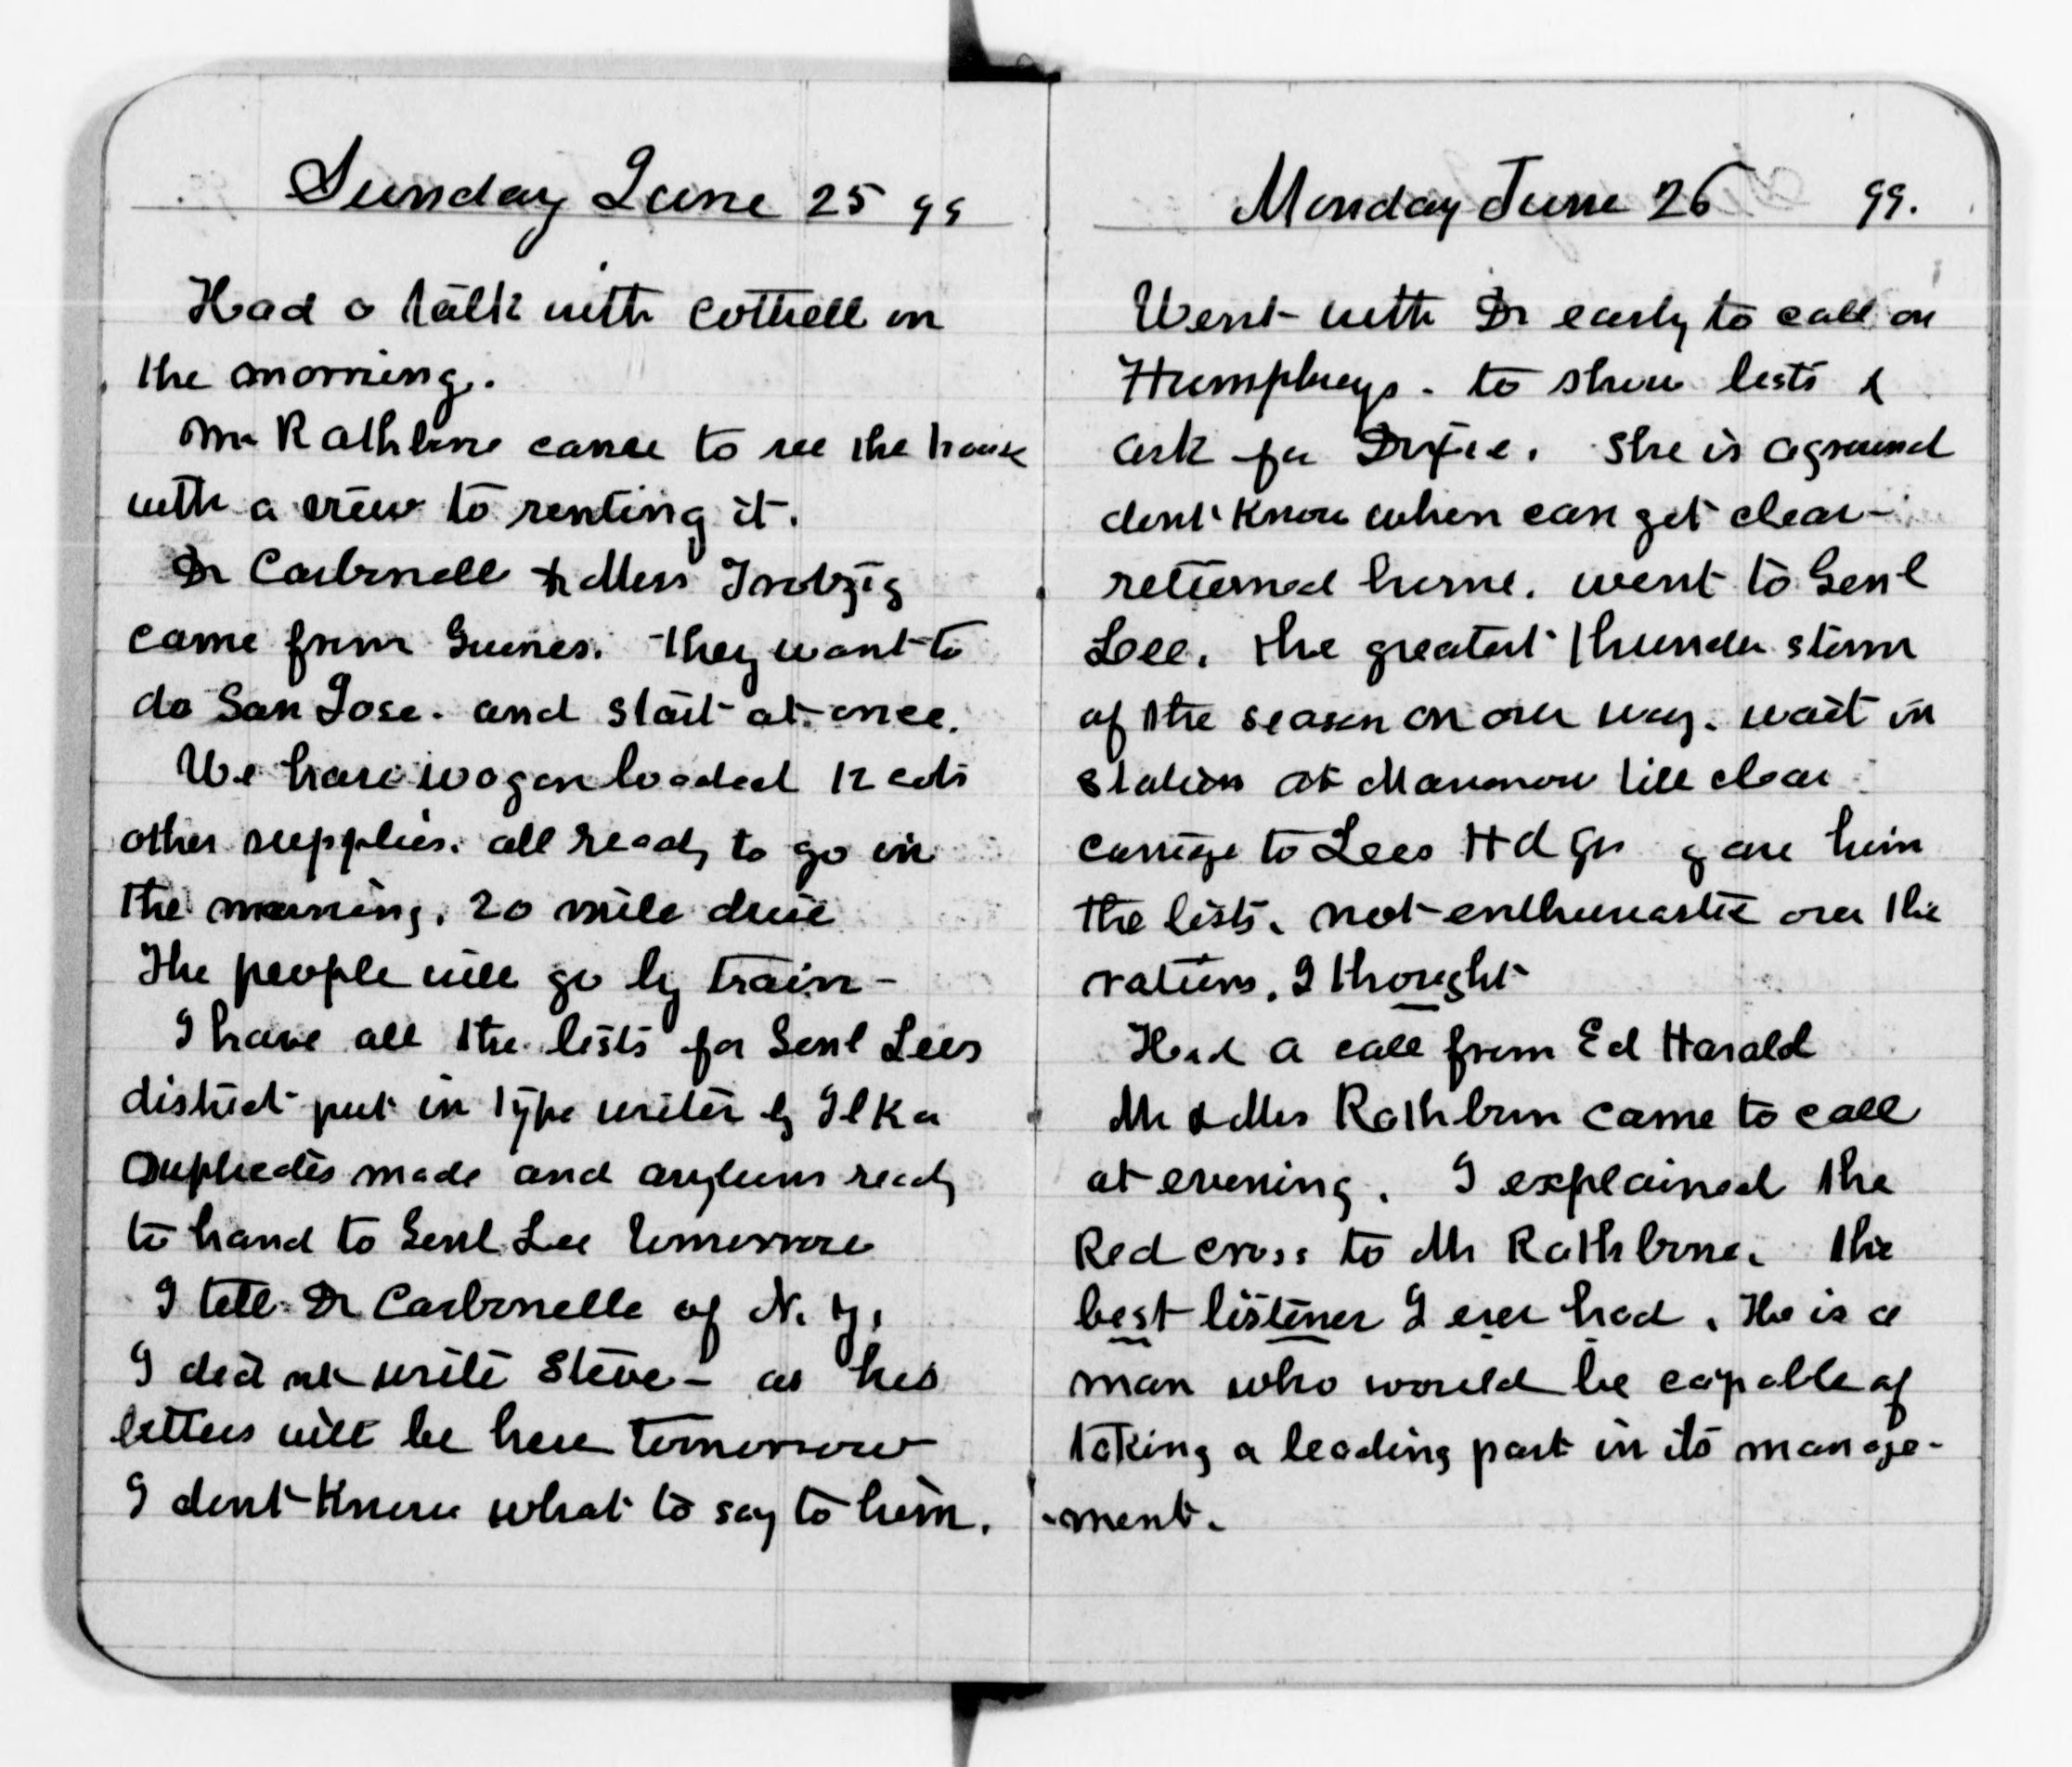 Sunday June 25 99
Had a talk with Cottrell in
the morning.
Mr Rathbone came to see the house
with a view to renting it.
Dr Carbonell & Mess
came from Guines. They want to
do San Jose. and start at once.
We have wagon loaded 12 cots
other supplies. all ready to go in
the morning, 20 mile drive
The people will go by train -
I have all the lists for Genl Lees
district put in type writer by Ilka
Duplicates made and asylums ready
to hand to Genl Lee tomorrow
I tell Dr Carbonelle of N. Y.
I did not write Steve - as his
letters will be here tomorrow
I dont Know what to say to him.
Monday June 26 99.
Went with Dr early to call on
Humphreys - to show lists &
ask for Dixie. She is aground
dont Know when can get clear -
returned home. went to Genl
Lee. the greatest thunder storm
of the season on our way. wait in
station at till clear
carriage to Lees Hd Qrs gave him
the lists. not enthusiastic over the
rations, I thought
Had a call from Ed Harald
Mr & Mrs Rathbun came to call
at evening. I explained the
Red cross to Mr Rathbone. the
best listener I ever had. He is a
man who would be capable of
taking a leading part in its manage-
-ment.